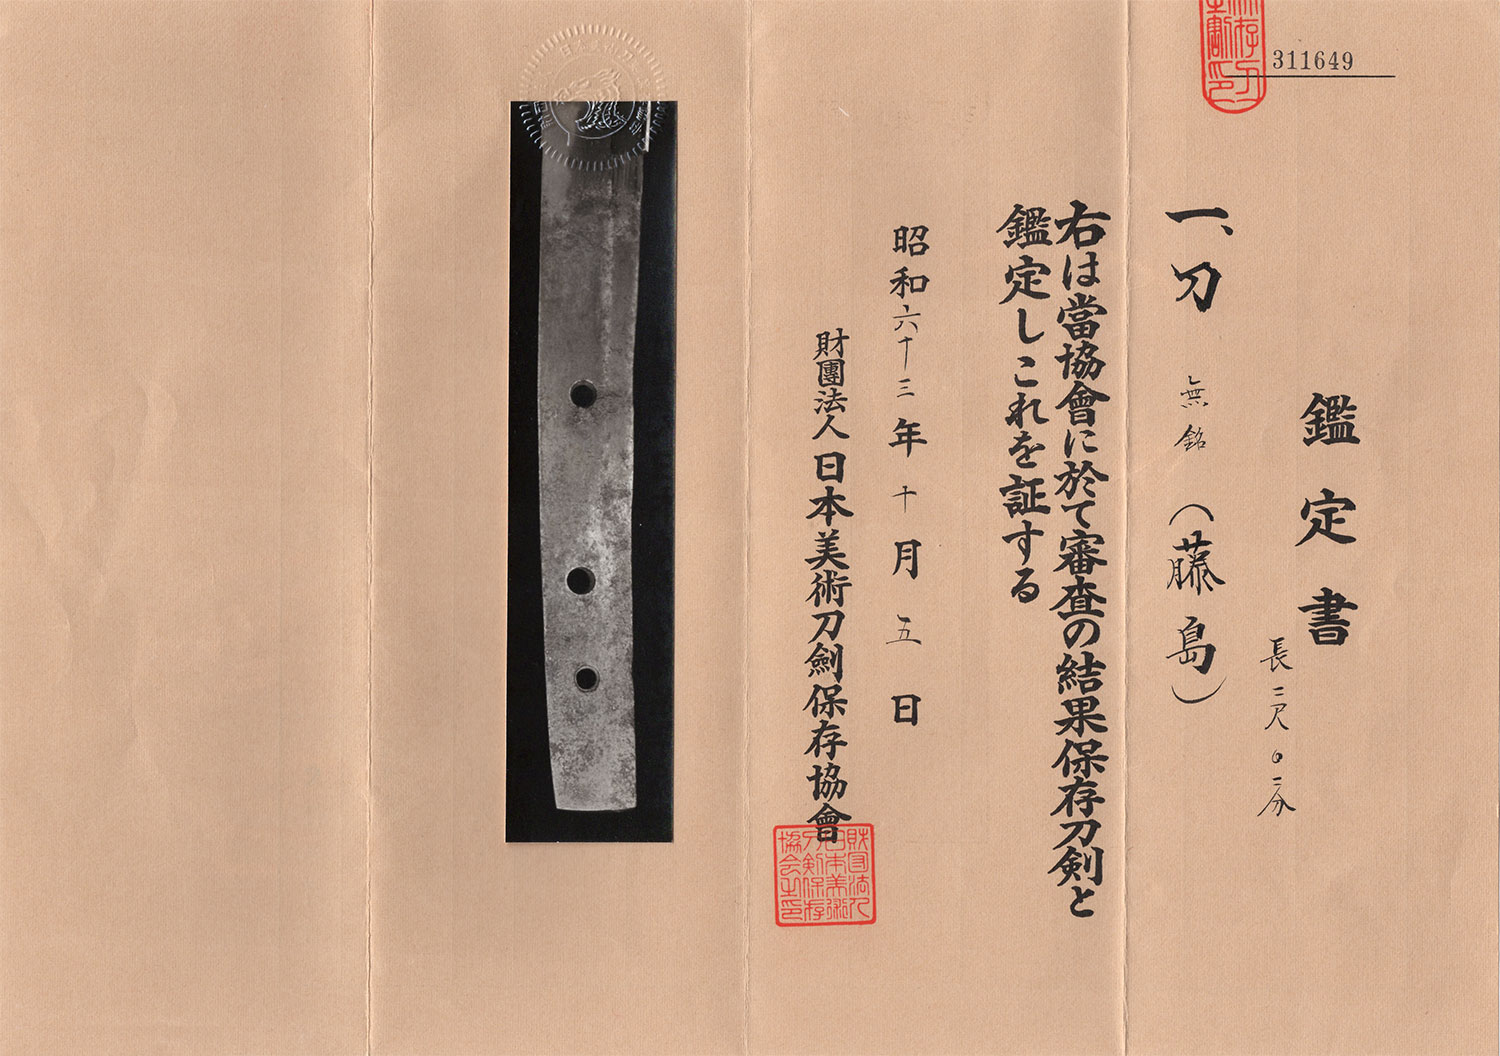 311649
鑑定書
長二尺〇二分
一、刀 無銘(藤島)
右は當協會に於て審査の結果保存刀剣と
鑑定しこれを証する
昭和六十三年十月五日
財團法人日本美術刀劍保存協會
財団法人
日本美術
刀剣保存
協会之印